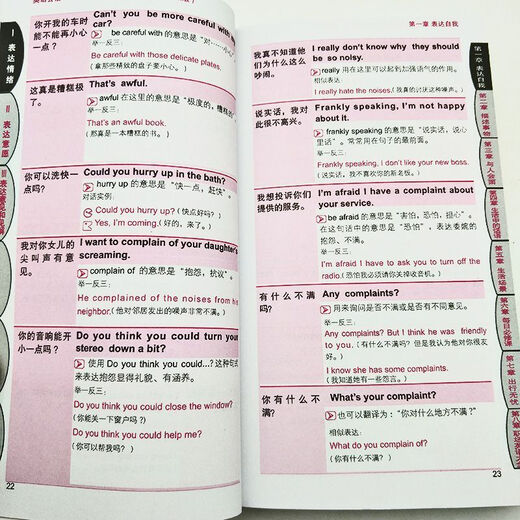 你开我的车时
能不能再小心
一点？
Can't you be more careful with the
car?
be careful with 的意思是“对……小心”
举一反三：
Be careful with those delicate plates.
(拿那些精致的盘子要小心。)
这真是糟糕极
了。
That's awful.
awful 在这里的意思是“极度的，糟糕的
举一反三：
That's an awful book.
(那真是一本糟糕的书。)
你可以洗快一
点吗？
Could you hurry up in the bath?
hurry up 的意思是“快一点，赶快”。
对话实例：
Could you hurry up? (快点好吗？)
Yes, I'm coming. (好的，来了。)
我对你女儿的
尖叫声有意
见。
I want to complain of your daughter's
screaming.
complain of 的意思是“抱怨，抗议”。
举一反三：
He complained of the noises from his
neighbor. (他对邻居发出的噪声非常不满。)
你的音响能开
小一点吗？
Do you think you could turn your
stereo down a bit?
使用 Do you think you could…? 这种句式
来表达抱怨显得礼貌、有涵养。
举一反三：
Do you think you could close the window?
(你能关一下窗户吗？)
Do you think you could help me?
(你可以帮我吗？)
22
I 表达情绪
II 表达意愿
第一章 表达自我
我真不知道他
们为什么这么
吵闹。
I really don't know why they should
be so noisy.
really 用在这里可以起到加强语气的作用。
相似表达：
I really hate the noises. (我真的讨厌这种噪声。)
说实话，我对
此很不高兴。
Frankly speaking, I'm not happy
about it.
frankly speaking 的意思是“说实话，说心
里话”。常常用在句子的最前面。
举一反三：
Frankly speaking, I don't like your new boss.
(说实话，我不喜欢你的新老板。)
我想投诉你们
提供的服务。
I'm afraid I have a complaint about
your service.
be afraid 的意思是“害怕，恐怕，担心”。
在这句话中的意思是“恐怕”，表达委婉的
抱怨、不满。
举一反三：
I'm afraid I have to ask you to turn off the
radio. (恐怕我必须请你关掉收音机。)
有什么不满
吗？
Any complaints?
用来询问是否不满或是否有不同意见。
举一反三：
Any complaints? But I think he was friendly
to you. (有什么不满吗？但是我认为他对你很友
好。)
I know she has some complaints.
(我知道她有一些怨言。)
你有什么不
满？
What's your complaint?
也可以翻译为：“你对什么地方不满？”
相似表达：
What do you complain of?
(你有什么不满？)
23
第一章 表达自我
第二章 描述事物
第三章 与人交流
第四章 生活中的话语
第五章 生活场景
第六章 每日必修课
第七章 出行无忧